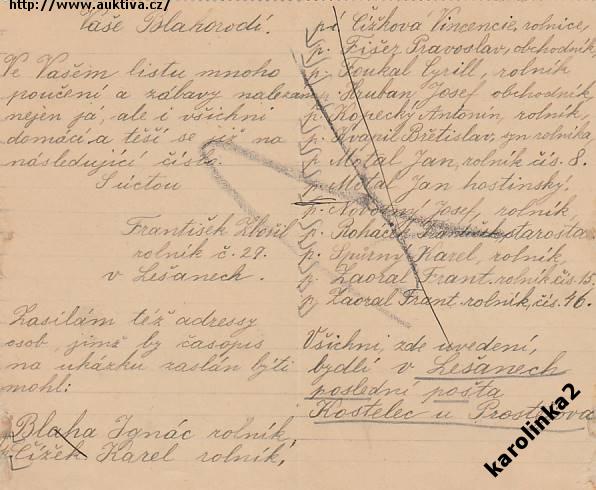 http://www.auktiva.cz/
Vaše Blahorodí.
Ve Vašem listu mnoho
poučení a zábavy nalezám
nejen já, ale i všichni
domácí a těší se již na
následující číslo.
S úctou
František Zbořil
rolník č. 27.
v Lešanech.
Zasílám též adressy
osob, jimž by časopis
na ukázku zaslán býti
mohl:
Blaha Ignác rolník,
Čížek Karel rolník,
pí Čížkova Vincencie, rolnice,
p. Fišer Pravoslav, obchodník,
p. Foukal Cyrill, rolník
p. Hruban Josef obchodník
p. Kopecký Antonín, rolník,
p. Kvapil Břetislav, syn rolníka,
p. Motal Jan, rolník čís. 8.
p. Motal Jan hostinský.
p. Novotný Josef, rolník,
p. Roháček František, starosta
p. Spurný Karel, rolník,
p. Zaoral Frant. rolník, čís. 15.
p. Zaoral Frant. rolník, čís. 46.
Všichni, zde uvedení,
bydlí v Lešanech
poslední pošta
Kostelec u Prostějova
karolinka2